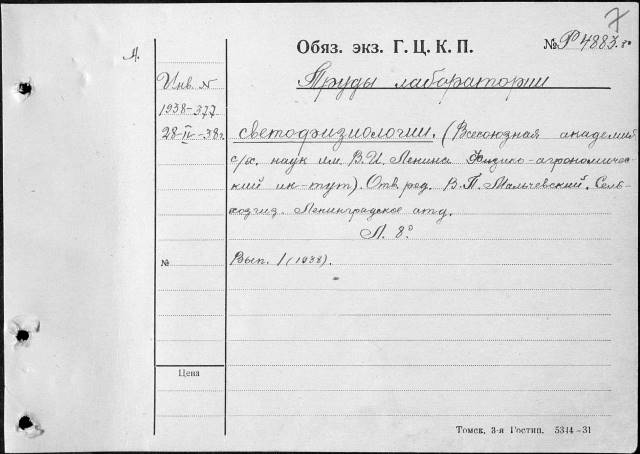 7
Обяз. экз. Г. Ц. К. П. № Р4883.
Инв. N
Труды лаборатории
1938-377
28-II-38г.
светофизиологии. (Всесоюзная академия
с/х. наук им. В.И. Ленина Физико-агрономичес
ский ин-тут). Отв. ред. В.П. Мальчевский. Сель
хозгиз. Ленинградское отд.
Л. 8°
№
Вып. 1 (1938).
Цена
Томск, 3-я Гостип. 5344-31